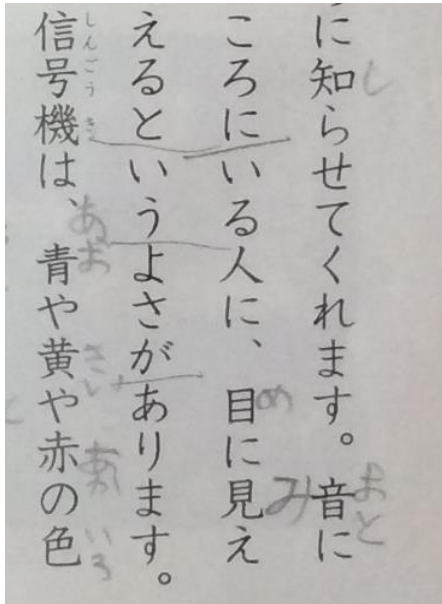 に知らせてくれます。音に
ころにいる人に、目に見え
えるというよさがあります。
信号機は、青や黄や赤の色
しんごうき
し
おと
め
み
あお
き
あか
いろ